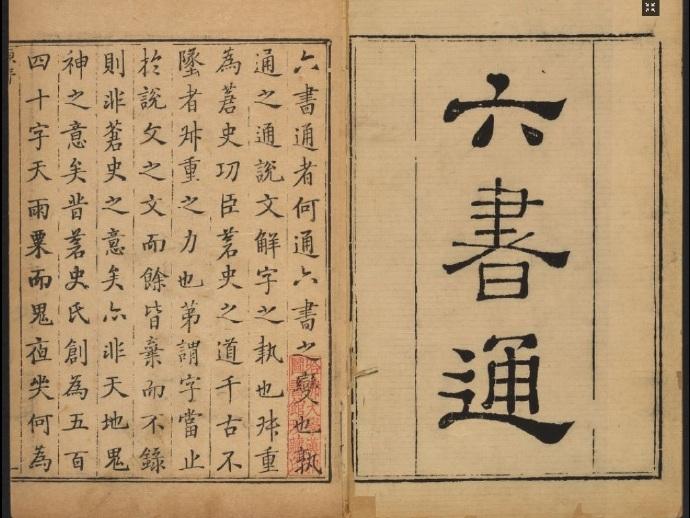 六書通
六書通者何通六書之變也孰
通之通說文解字之執也叔重
為蒼史功臣蒼史之道千古不
墜者叔重之力也第謂字當止
於說文之文而餘皆棄而不錄
則非蒼史之意矣亦非天地鬼
神之意矣昔蒼史氏創為五百
四十字天雨粟而鬼夜哭何為